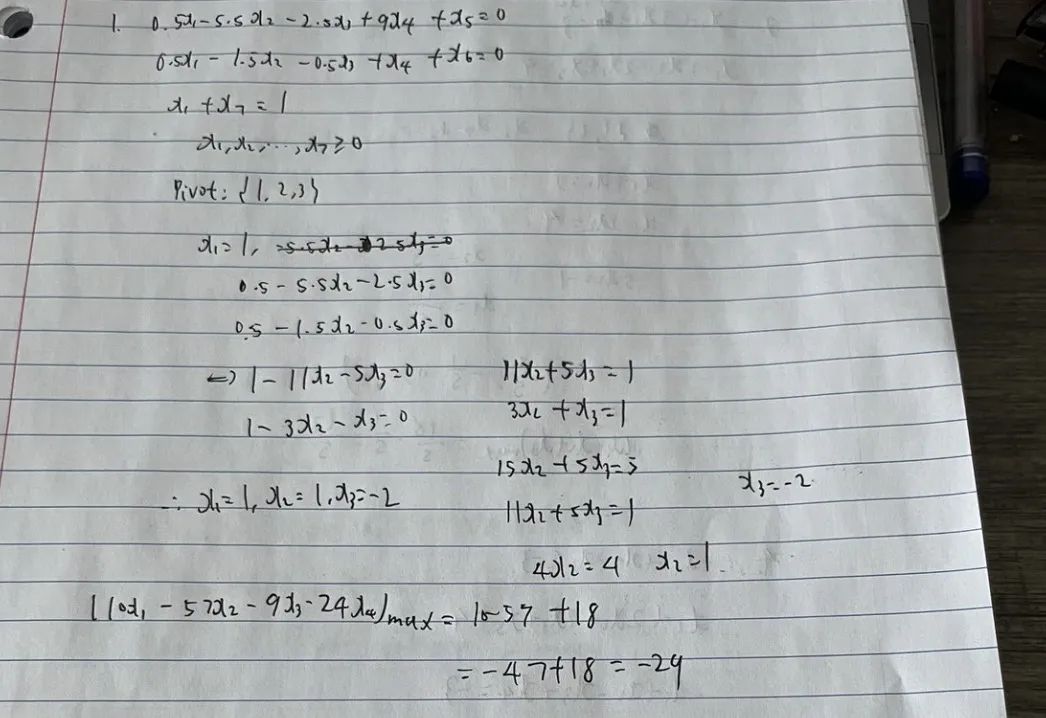 1. 0.5x₁ - 5.5x₂ - 2.5x₃ + 9x₄ + x₅ = 0
0.5x₁ - 1.5x₂ - 0.5x₃ + x₄ + x₆ = 0
x₁ + x₇ = 1
x₁, x₂, ..., x₇ ≥ 0
Pivot: {1, 2, 3}
x₁ = 1,
0.5 - 5.5x₂ - 2.5x₃ = 0
0.5 - 1.5x₂ - 0.5x₃ = 0
⇔ 1 - 11x₂ - 5x₃ = 0
1 - 3x₂ - x₃ = 0
11x₂ + 5x₃ = 1
3x₂ + x₃ = 1
15x₂ + 5x₃ = 5
11x₂ + 5x₃ = 1
4x₂ = 4 x₂ = 1
x₃ = -2
∴ x₁ = 1, x₂ = 1, x₃ = -2
(10x₁ - 57x₂ - 9x₃ - 24x₄)max = 10-57 + 18
= -47 + 18 = -29